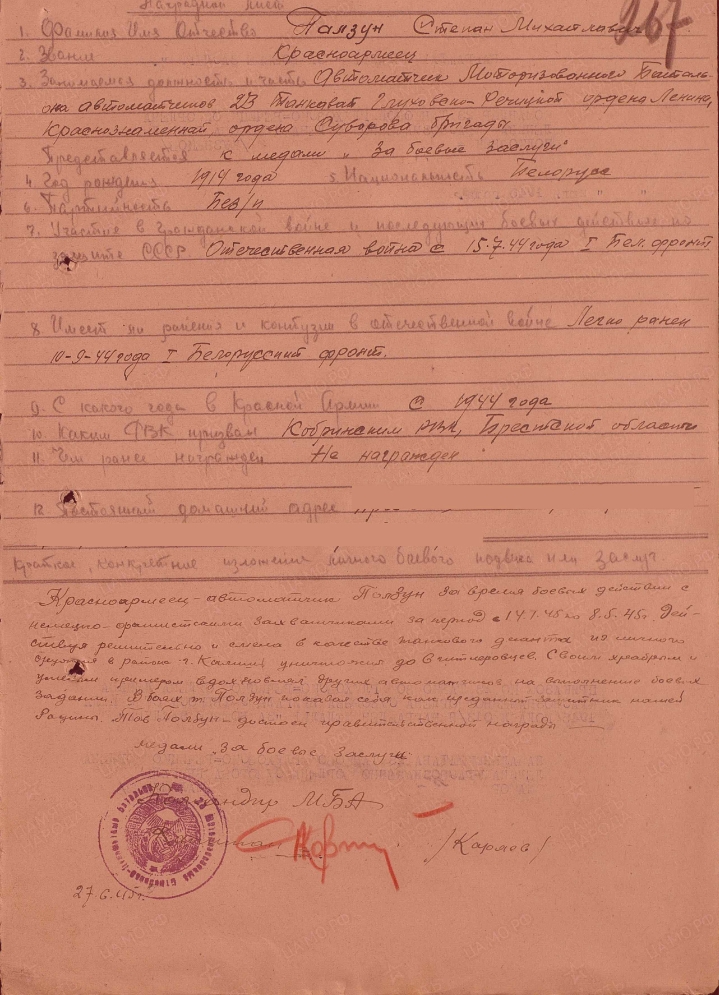 Наградной лист
267
1. Фамилия Имя Отчество Палзун Степан Михайлович
2. Звание Красноармеец
3. Занимаемая должность и часть Автоматчик Моторизованного Баталь-
она автоматчиков 23 Танковой Глуховско-Речицкой ордена Ленина,
Краснознаменной ордена Суворова бригады
Представляется к медали "За боевые заслуги"
4. Год рождения 1914 года 5. Национальность Белорус
6. Партийность Без/п
7. Участие в гражданской войне и последующих боевых действиях по
защите СССР Отечественная война с 15.7.44 года I Бел. фронт
8. Имеет ли ранения и контузии в отечественной войне Легко ранен
10-9-44 года I Белорусский фронт.
9. С какого года в Красной Армии С 1944 года
10. Каким РВК призван Кобринским РВК, Брестской области
11. Чем ранее награжден Не награжден
12. Постоянный домашний адрес
Краткое, конкретное изложение личного боевого подвига или заслуг.
Красноармеец-автоматчик Ползун за время боевых действий с
немецко-фашистскими захватчиками за период с 14.1.45 по 8.5.45г. Дей-
ствуя решительно и смело в качестве танкового десанта из личного
оружия в районе г. уничтожил до 6 гитлеровцев. Своим храбрым и
примером вдохновлял других автоматчиков на выполнение боевых
заданий. В боях т. Ползун показал себя, как преданный защитник нашей
Родины. Тов Ползун - достоен правительственной награды
медали "За боевые заслуги"
Командир МБА
/Карпов/
27.6.45г.